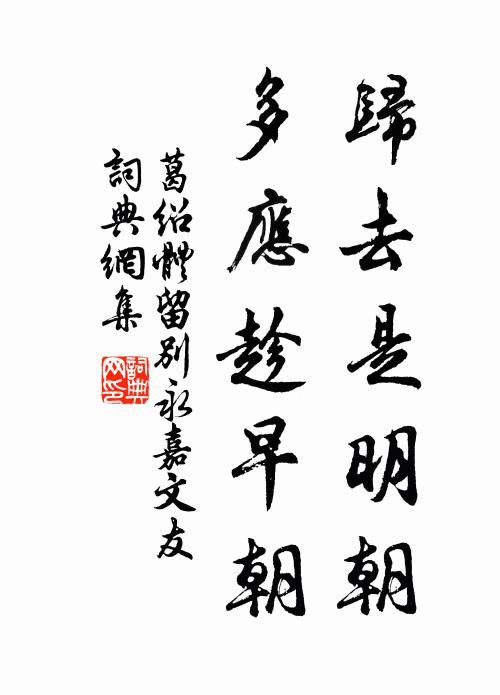 歸去是明朝
多應趁早朝
葛紹體留別永嘉文友
詞典網集
詞典
网印